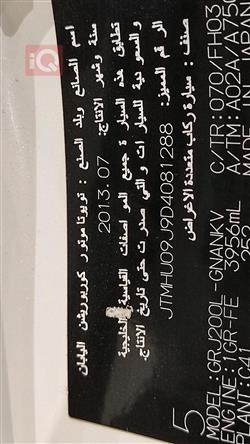 iQ
اسم الصانع وبلد الصنع : تويوتا موتور كوربوريشن اليابان
سنة وشهر الانتاج: 2013.07
تطابق هذه السيارة جميع المواصفات القياسية الخليجية
والسعودية للسيارات والتي صدرت حتى تاريخ الانتاج.
الرقم المميز: JTMHU09J9D4081288
صنف : سيارة ركاب متعددة الاغراض
5
C/TR:070/FH03
A/TM:A02A/A750
MODEL:GRJ200L-GNANKV
ENGINE:1GR-FE 3956mL